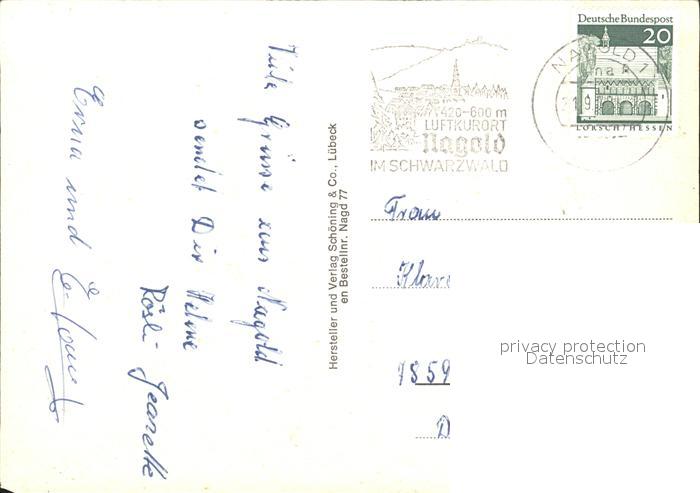 Viele Grüsse aus Nagold
sendet Dir Helene
Rösli Jeanette
Erna und
Hersteller und Verlag Schöning & Co., Lübeck
en Bestellnr. Nagd 77
420-600 m
LUFTKURORT
Nagold
IM SCHWARZWALD
NAGOLD 1
Deutsche Bundespost
20
LORSCH/HESSEN
Frau
Klara
7859
D
privacy protection
Datenschutz